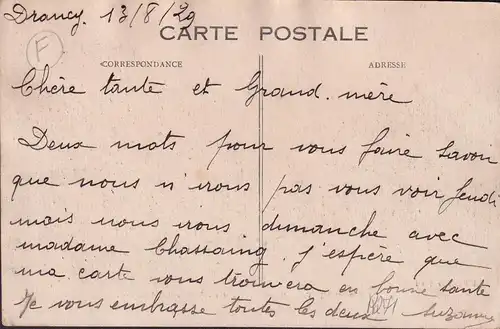 Drancy. 13/8/29
CARTE POSTALE
F
CORRESPONDANCE
ADRESSE
Chère tante et Grand-mère
Deux mots pour vous faire savoir
que nous n'irons pas vous voir Jeudi
mais nous irons dimanche avec
madame Chassaing. j'espère que
ma carte vous trouvera en bonne sante
Je vous embrasse toutes les deux Suzanne